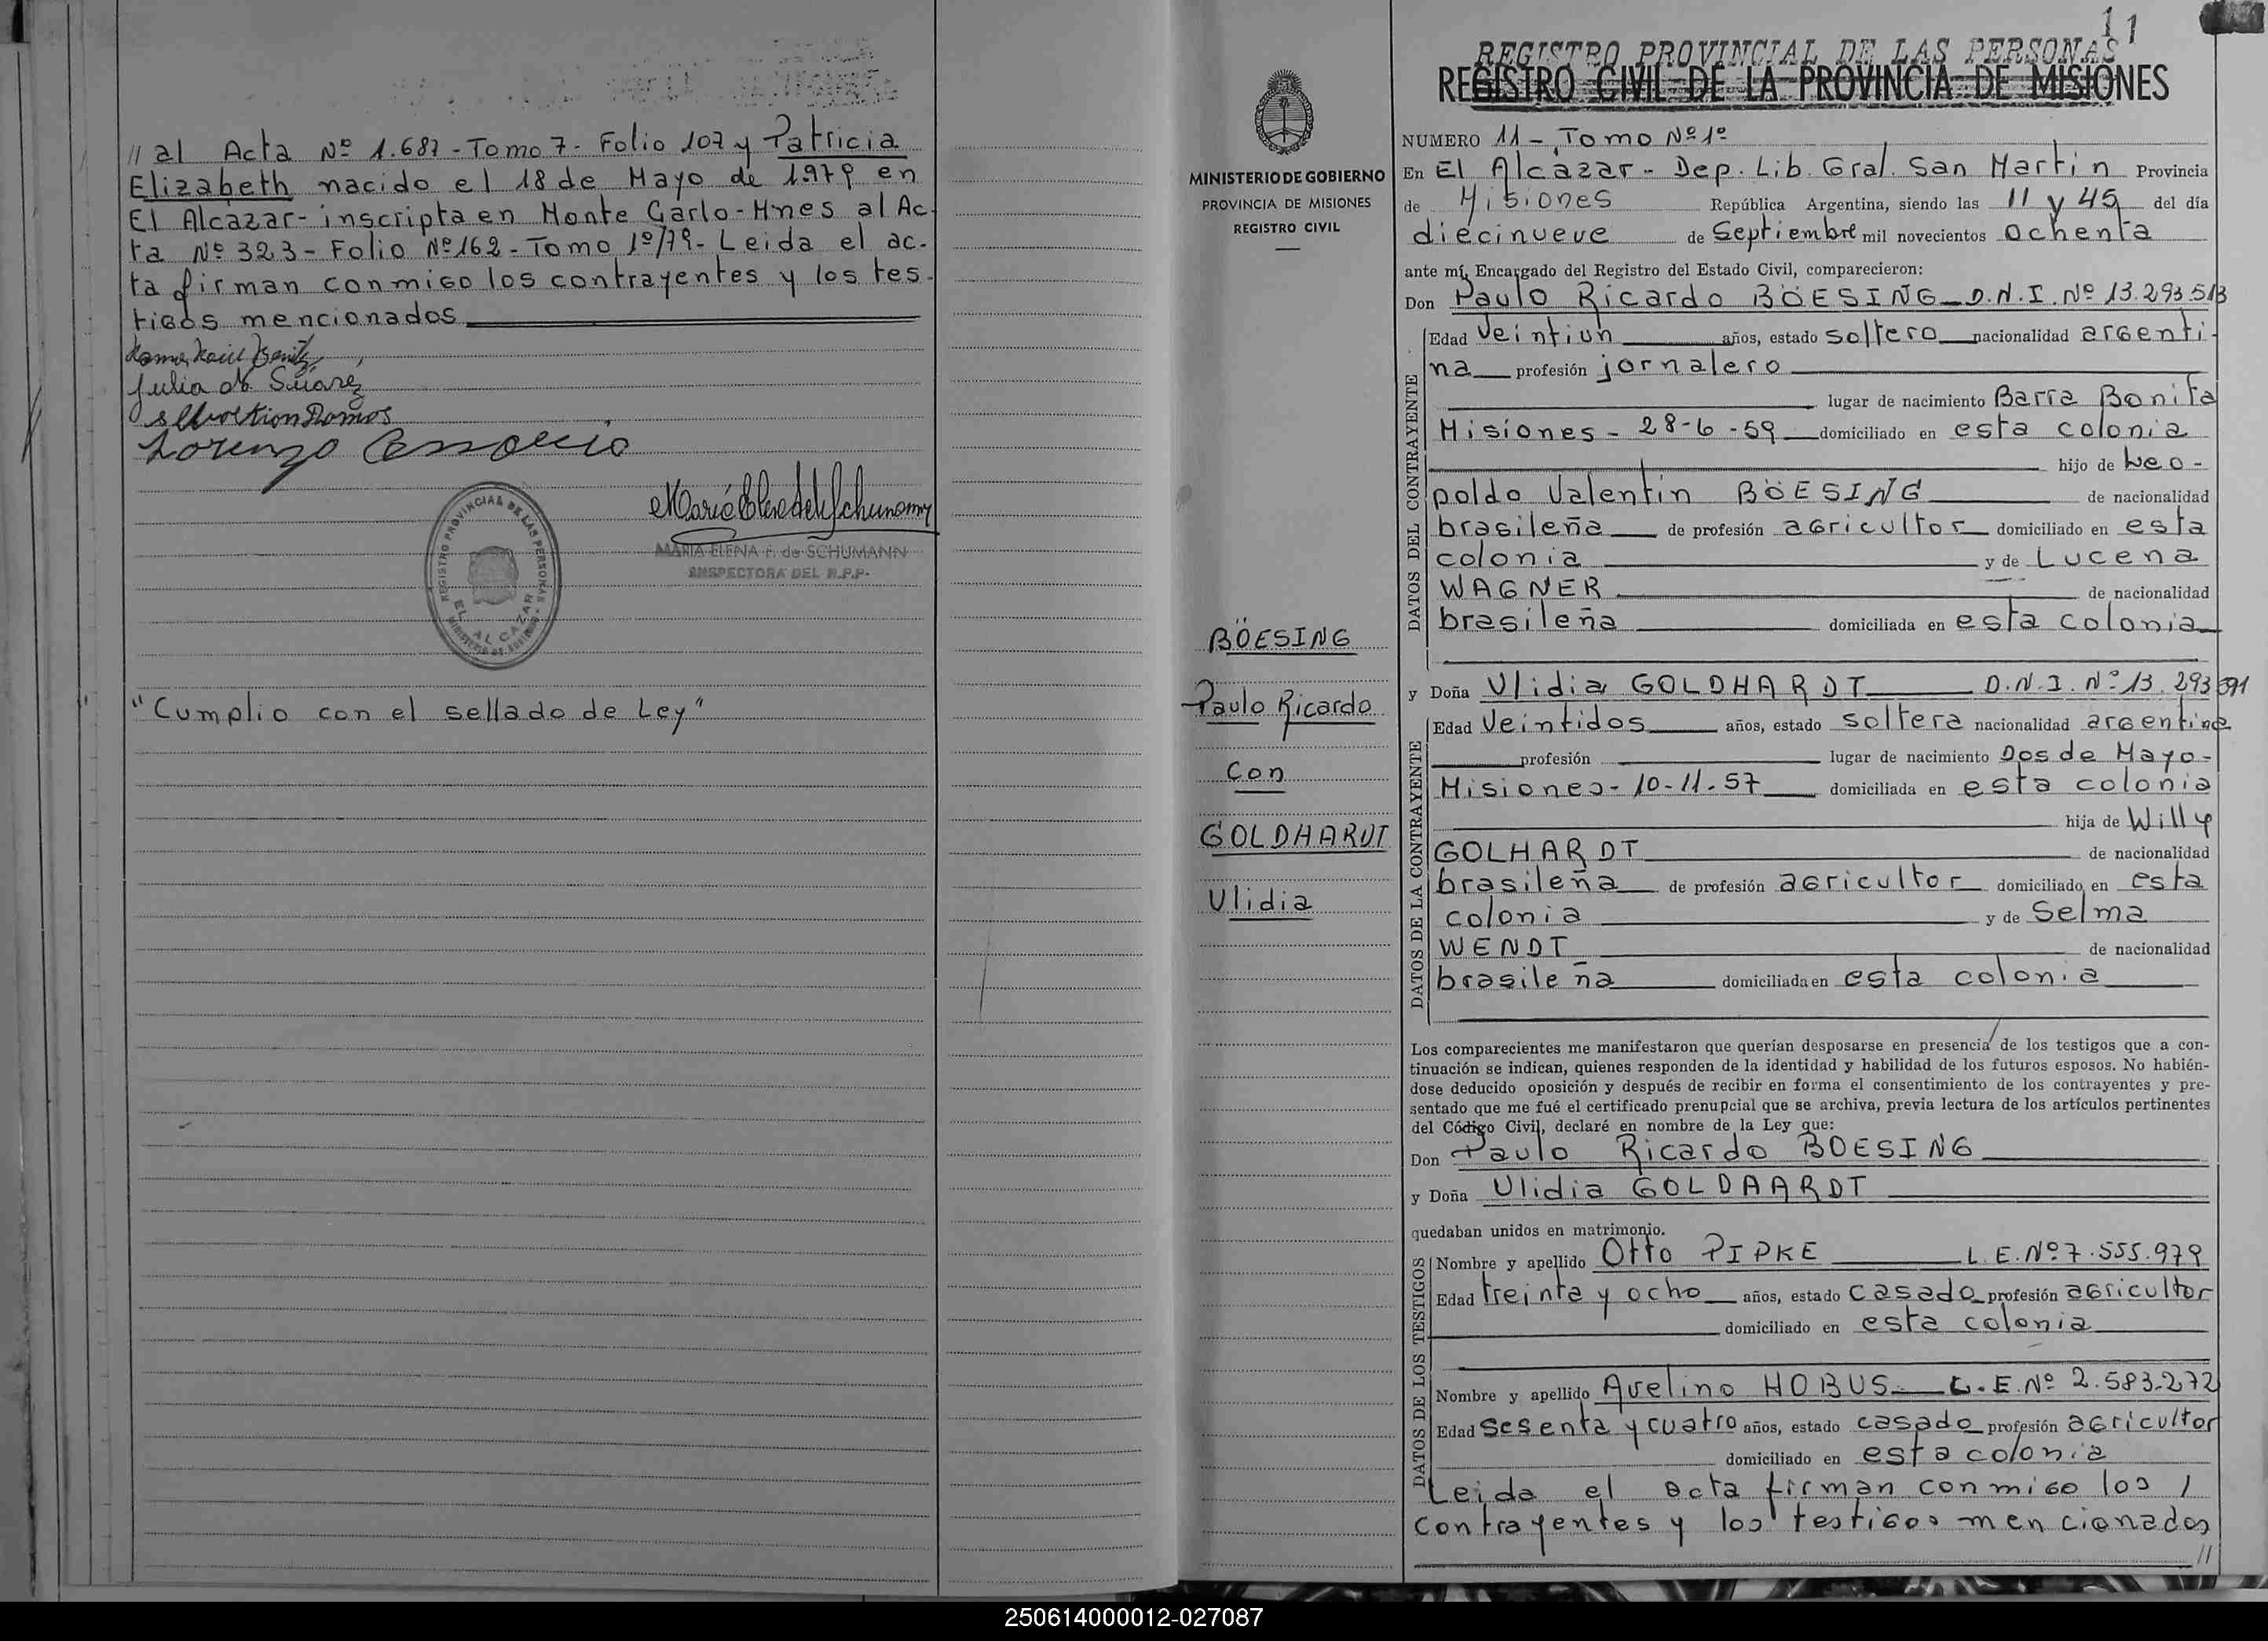 // al Acta Nº 1.687 - Tomo 7 - Folio 107 y Patricia
Elizabeth nacido el 18 de Mayo de 1979 en
El Alcázar - inscripta en Monte Carlo - Mnes al Ac-
ta Nº 323 - Folio Nº 162 - Tomo 1º/79 - Leida el ac-
ta firman conmigo los contrayentes y los tes-
tigos mencionados
Julia Suárez
Ramos
Lorenzo
REGISTRO PROVINCIAL DE LAS PERSONAS
EL ALCAZAR
MARIA ELENA F. de SCHUMANN
INSPECTORA DEL R.P.P.
"Cumplio con el sellado de Ley"
MINISTERIO DE GOBIERNO
PROVINCIA DE MISIONES
REGISTRO CIVIL
BÖESING
Paulo Ricardo
Con
GOLDHARDT
Ulidia
11
REGISTRO PROVINCIAL DE LAS PERSONAS
REGISTRO CIVIL DE LA PROVINCIA DE MISIONES
NUMERO 11 - Tomo Nº 1º
En El Alcázar - Dep. Lib. Gral. San Martín Provincia
de Misiones República Argentina, siendo las 11 y 45 del día
diecinueve de Septiembre mil novecientos ochenta
ante mí, Encargado del Registro del Estado Civil, comparecieron:
Don Paulo Ricardo BÖESING D.N.I. Nº 13.293.513
DATOS DEL CONTRAYENTE
Edad Veintiun años, estado soltero nacionalidad argenti-
na profesión jornalero
lugar de nacimiento Barra Bonita
Misiones - 28-6-59 domiciliado en esta colonia
hijo de Leo-
poldo Valentín BÖESING de nacionalidad
brasileña de profesión agricultor domiciliado en esta
colonia y de Lucena
WAGNER de nacionalidad
brasileña domiciliada en esta colonia
y Doña Ulidia GOLDHARDT D.N.I. Nº 13.293.591
DATOS DE LA CONTRAYENTE
Edad Veintidos años, estado soltera nacionalidad argentina
profesión lugar de nacimiento Dos de Mayo -
Misiones - 10-11-57 domiciliada en esta colonia
hija de Willy
GOLHARDT de nacionalidad
brasileña de profesión agricultor domiciliado en esta
colonia y de Selma
WENDT de nacionalidad
brasileña domiciliada en esta colonia
Los comparecientes me manifestaron que querían desposarse en presencia de los testigos que a con-
tinuación se indican, quienes responden de la identidad y habilidad de los futuros esposos. No habién-
dose deducido oposición y después de recibir en forma el consentimiento de los contrayentes y pre-
sentado que me fué el certificado prenupcial que se archiva, previa lectura de los artículos pertinentes
del Código Civil, declaré en nombre de la Ley que:
Don Paulo Ricardo BOESING
y Doña Ulidia GOLDAARDT
quedaban unidos en matrimonio.
DATOS DE LOS TESTIGOS
Nombre y apellido Otto PIPKE L.E. Nº 7.555.979
Edad treinta y ocho años, estado casado profesión agricultor
domiciliado en esta colonia
Nombre y apellido Avelino HOBUS L.E. Nº 2.583.272
Edad sesenta y cuatro años, estado casado profesión agricultor
domiciliado en esta colonia
Leida el acta firman conmigo los /
contrayentes y los testigos mencionados
//
250614000012-027087